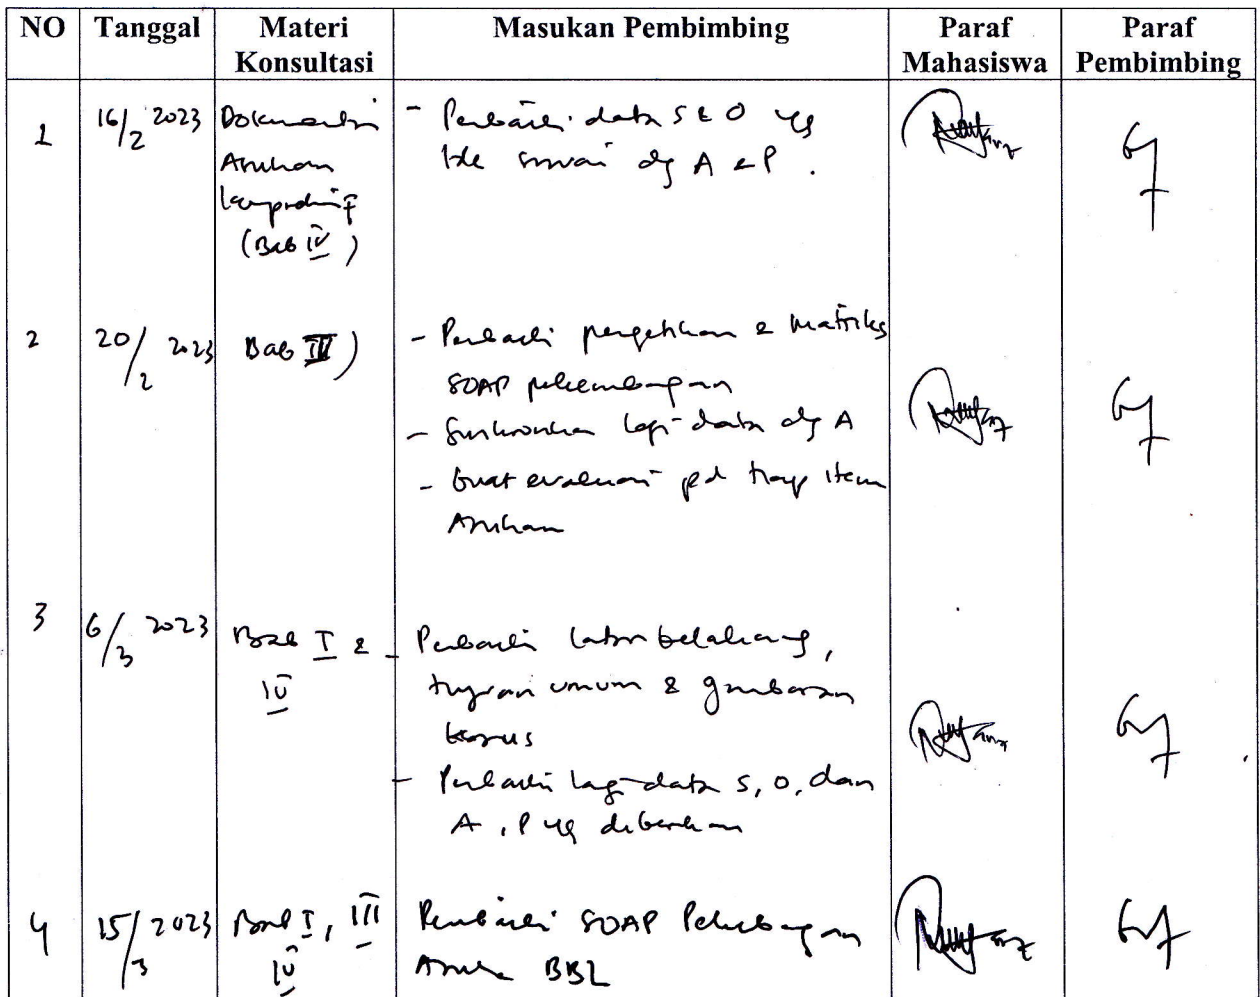 NO Tanggal Materi Konsultasi Masukan Pembimbing Paraf Mahasiswa Paraf Pembimbing
1 16/2 2023 Dokumentasi - Perbaiki data S & O yg
Asuhan tdk sesuai dg A & P.
komprehensif
(Bab IV)
2 20/2 2023 Bab III) - Perbaiki pengetikan & Matriks
SOAP perkembangan
- Sinkronkan lagi data dg A
- Buat evaluasi pd tiap item
Asuhan
3 6/3 2023 Bab I & IV - Perbaiki latar belakang,
tujuan umum & gambaran
kasus
- Perbaiki lagi data S, O, dan
A, P yg diberikan
4 15/3 2023 Bab I, III IV Perbaiki SOAP Perkembangan
BBL